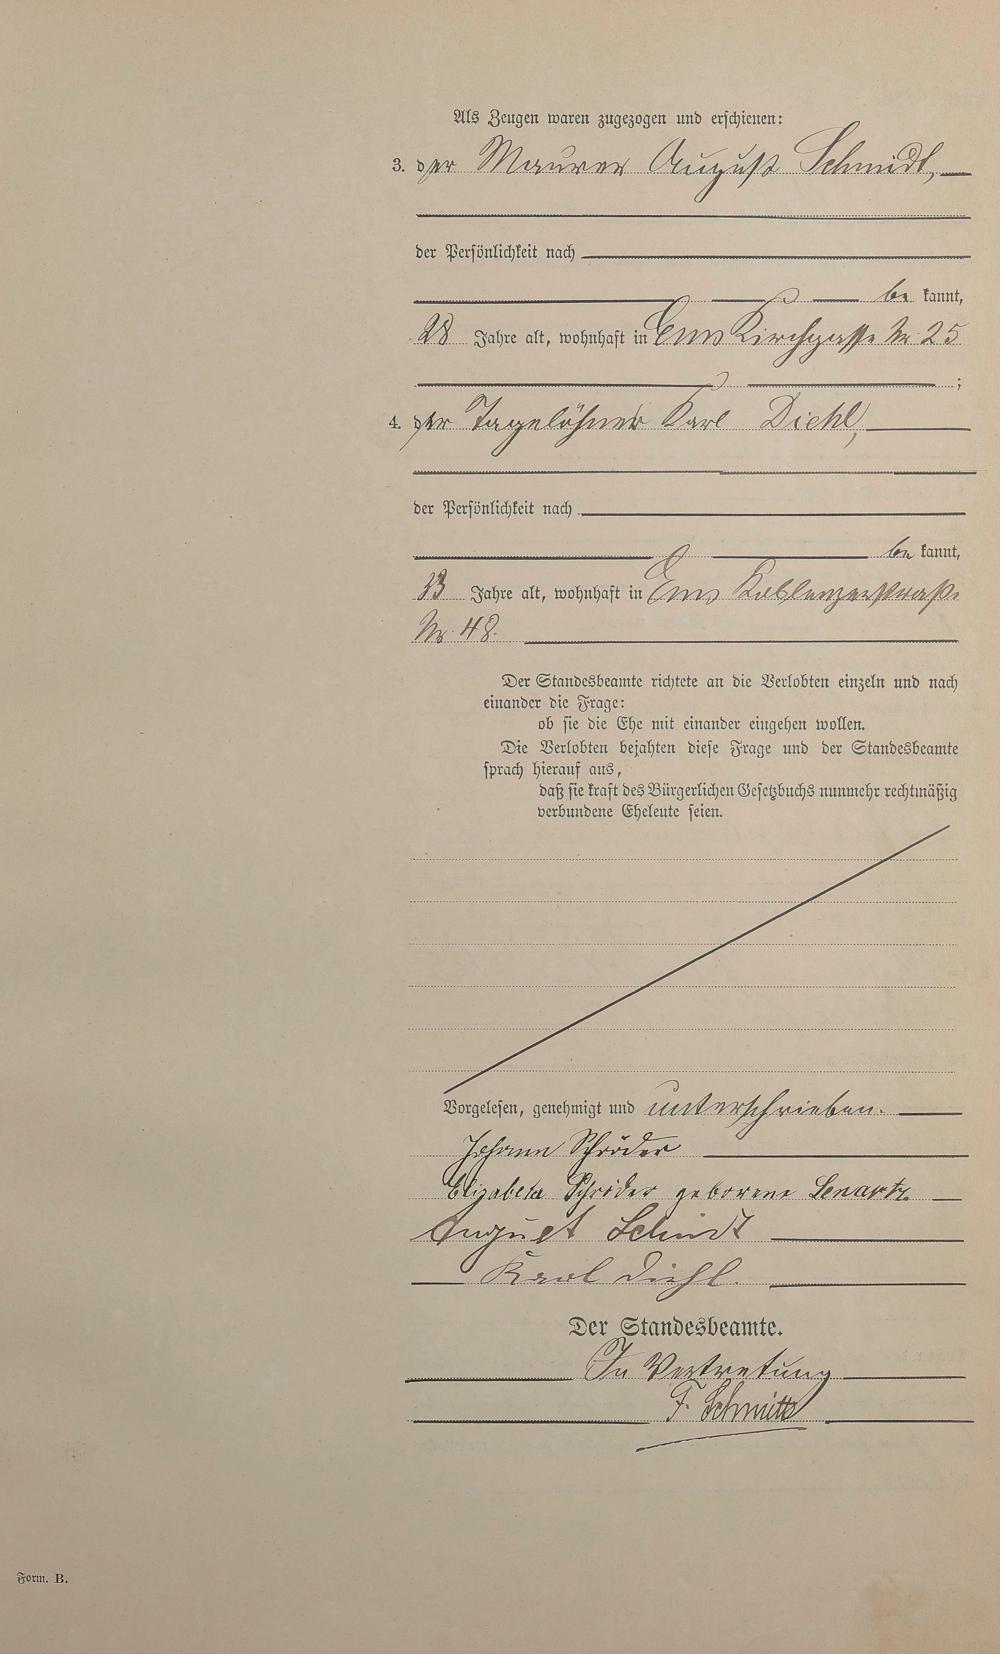 Als Zeugen waren zugezogen und erschienen:
3. der Maurer August Schmidt,
der Persönlichkeit nach
be kannt,
28 Jahre alt, wohnhaft in Ems Kirchgasse Nr 25
;
4. der Tagelöhner Karl Diehl,
der Persönlichkeit nach
be kannt,
33 Jahre alt, wohnhaft in Ems Koblenzerstraße
Nr. 48.
Der Standesbeamte richtete an die Verlobten einzeln und nach
einander die Frage:
ob sie die Ehe mit einander eingehen wollen.
Die Verlobten bejahten diese Frage und der Standesbeamte
sprach hierauf aus,
daß sie kraft des Bürgerlichen Gesetzbuchs nunmehr rechtmäßig
verbundene Eheleute seien.
Vorgelesen, genehmigt und unterschrieben.
Johann Schröder
Elizabeta Schröder geborene Lenartz
August Schmidt
Karl Diehl.
Der Standesbeamte.
In Vertretung
F. Schmitt
Form. B.